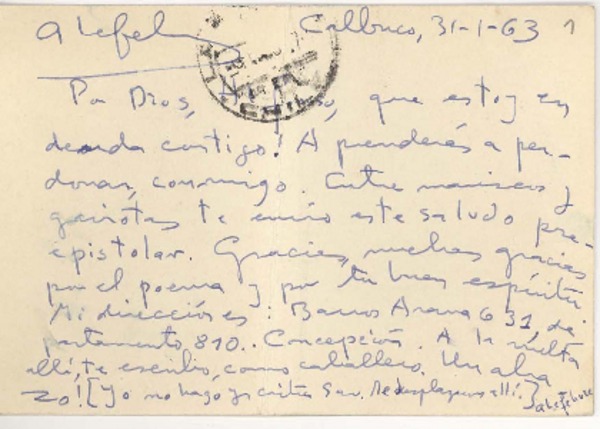 alefeb
Calbuco, 31-1-63 1
Por Dios, que estoy en
deuda contigo! Aprenderás a per-
donar, conmigo. Entre mariscos y
gaviotas te envío este saludo pre-
epistolar. Gracias, muchas gracias
por el poema y por tu buen espíritu.
Mi dirección es: Barros Arana 631, de-
partamento 810.. Concepción. A la vuelta
allí, te escribo, como caballero. Un abra
zo! [Yo no hago ya crítica allí.]
alefebvre